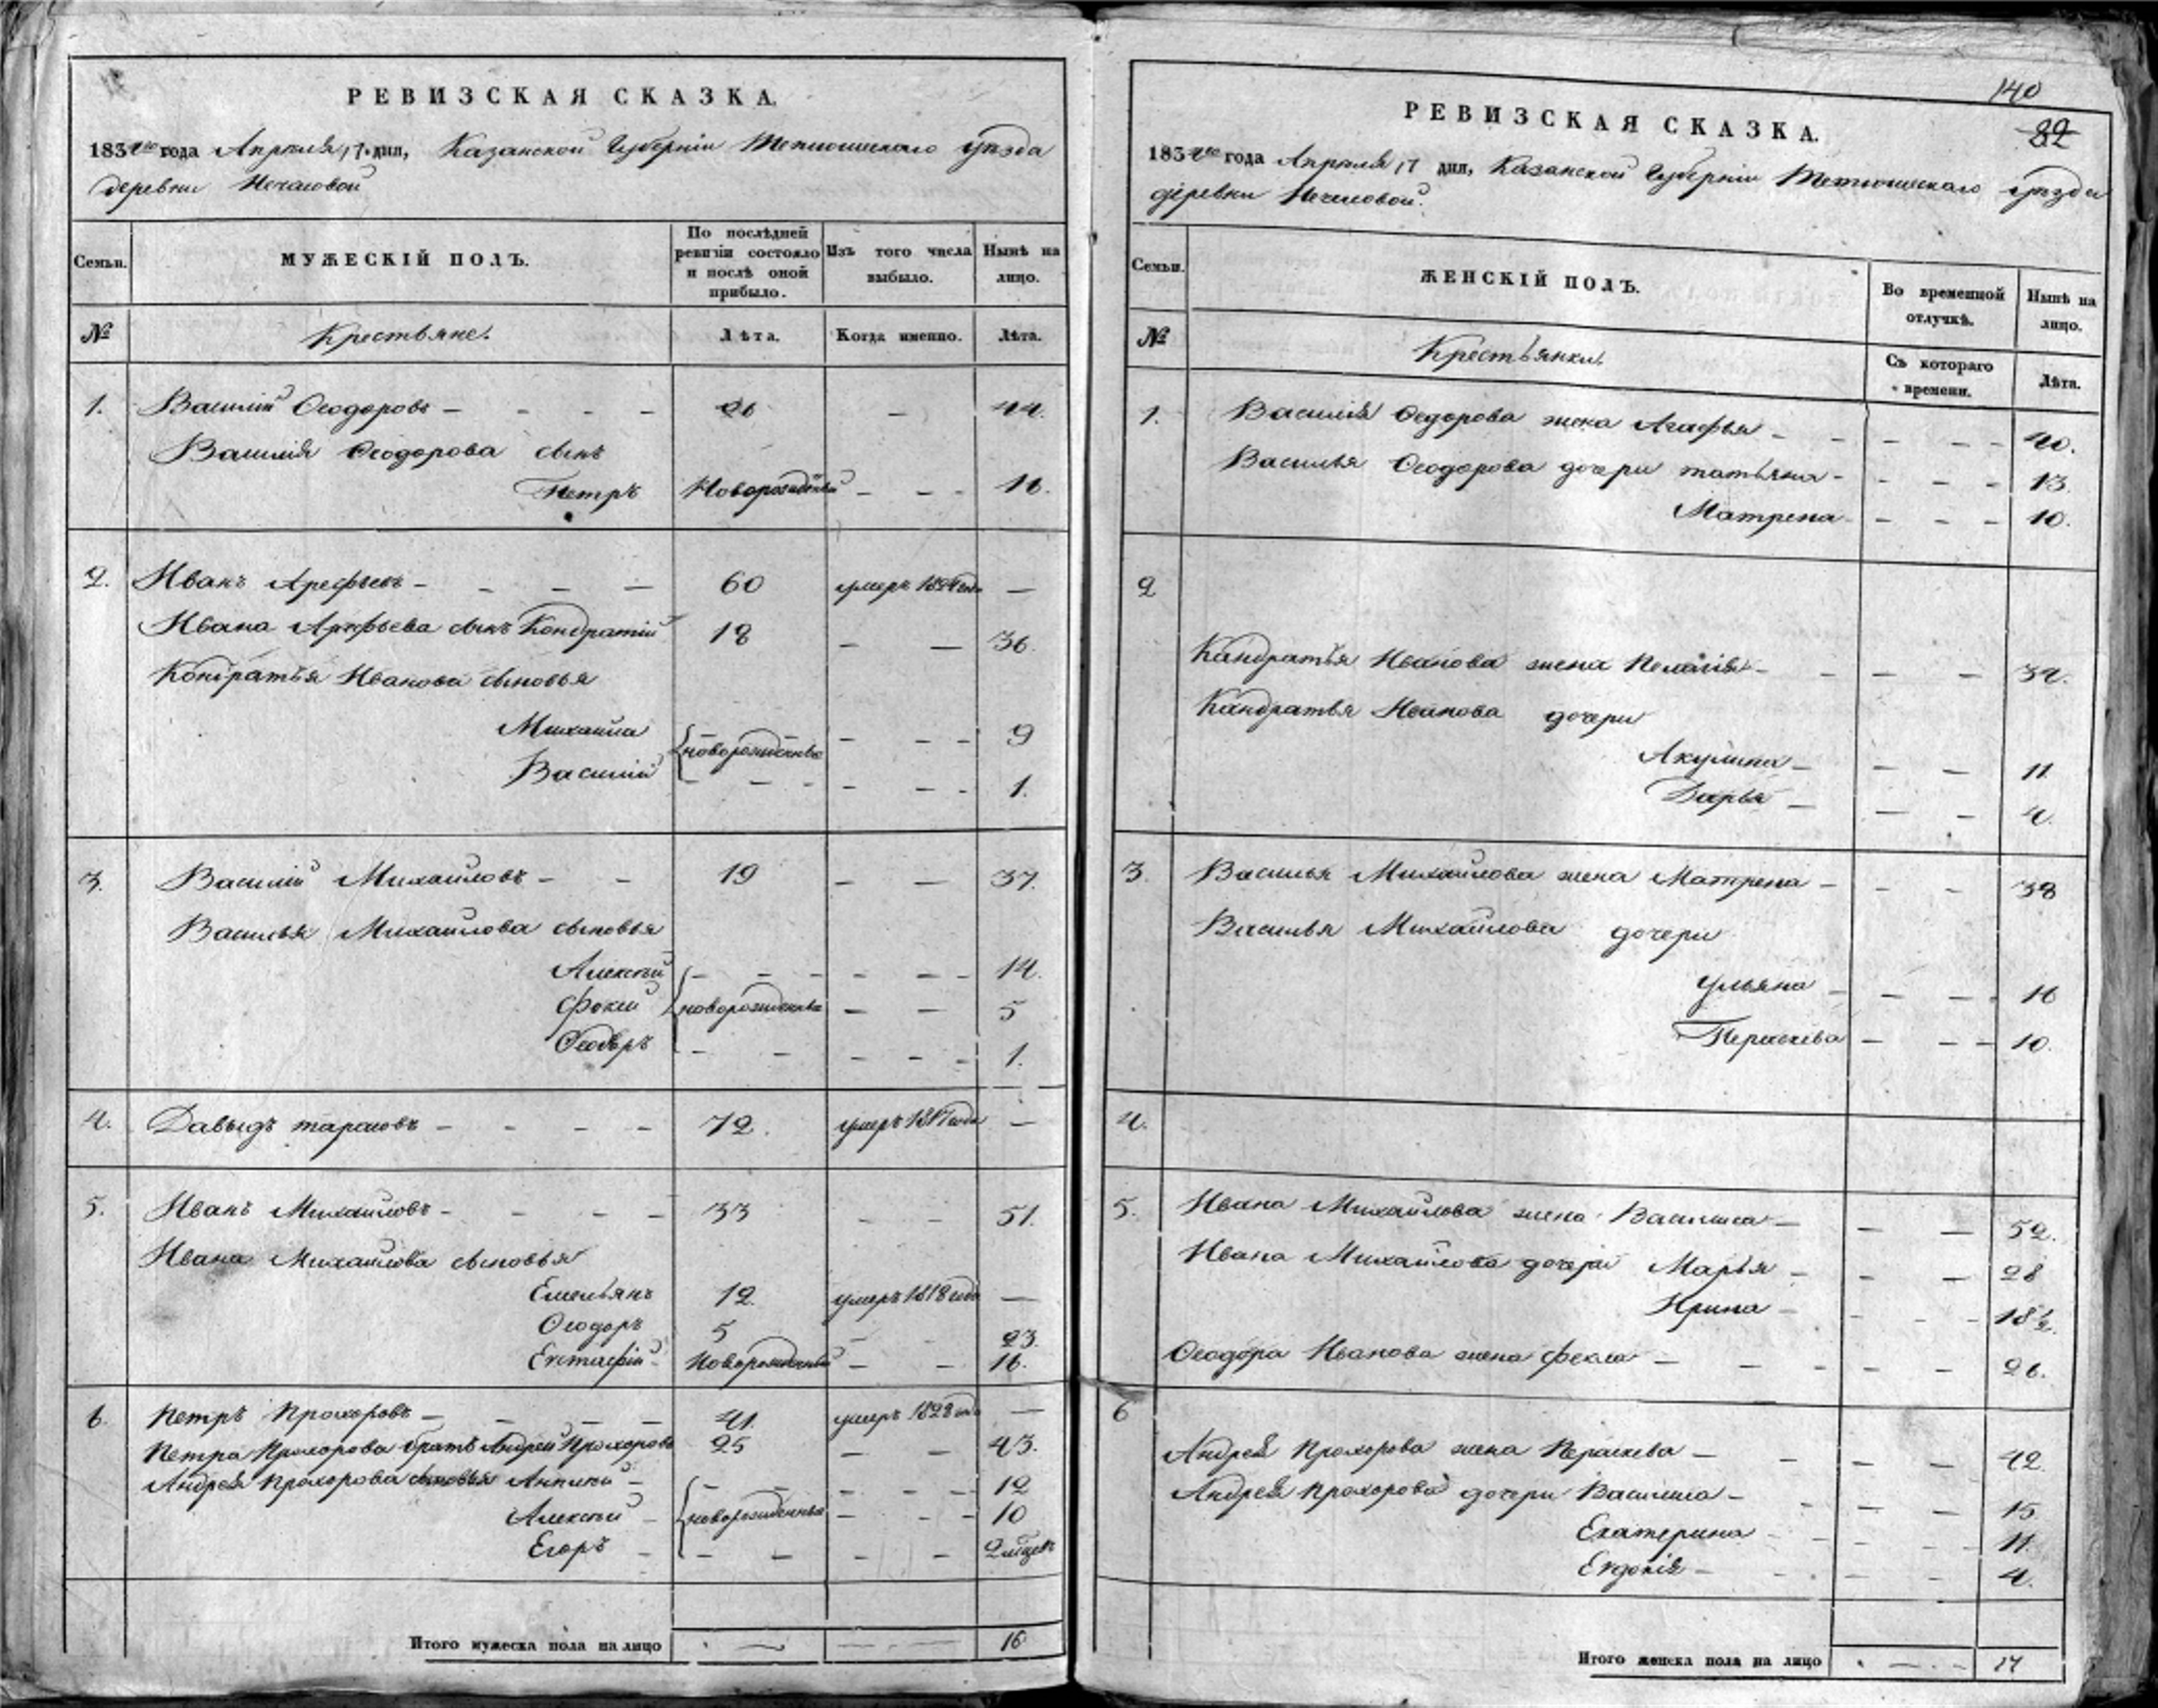 РЕВИЗСКАЯ СКАЗКА.
1834го года Апреля 17 дня, Казанской Губерніи Тетюшскаго уѣзда
деревни Нечасовой
Семьи.
МУЖЕСКІЙ ПОЛЪ.
По послѣдней ревизіи состояло и послѣ оной прибыло.
Изъ того числа выбыло.
Нынѣ на лицо.
№ Крестьяне. Лѣта. Когда именно. Лѣта.
1. Василій Ѳеодоровъ — - - - 26 — 44.
Василія Ѳеодорова сынъ
Петръ Новорожденный — - - 16.
2. Иванъ Арефьевъ — - — — 60 умеръ 1824 года —
Ивана Арефьева сынъ Кондратій 18 — — 36.
Кондратья Иванова сыновья
Михаила — - - 9
новорожденные
Василій — - - 1.
3. Василій Михайловъ — - 19 — — 37.
Василья Михайлова сыновья
Алексѣй - - - - - - 14.
Фокій новорожденные — — 5
Ѳеодоръ - - - - - 1.
4. Давыдъ Тарасовъ — - - - 72. умеръ 1817 года —
5. Иванъ Михайловъ — - - - 33 - - 51.
Ивана Михайлова сыновья
Емельянъ 12. умеръ 1818 года —
Ѳеодоръ 5 — - 23.
Евстафій Новорожденный — - 16.
6. Петръ Прохоровъ — - — — 41. умеръ 1828 года —
Петра Прохорова братъ Андрей Прохоровъ 25 — — 43.
Андрея Прохорова сыновья Антипій — - - - - - 12
Алексѣй — новорожденные — - - 10
Егоръ — - — - - 2 мѣсяцевъ
Итого мужеска пола на лицо 16
140
82
РЕВИЗСКАЯ СКАЗКА.
1834го года Апреля 17 дня, Казанской Губерніи Тетюшскаго уѣзда
деревни Нечасовой.
Семьи.
ЖЕНСКІЙ ПОЛЪ.
Во временной отлучкѣ.
Нынѣ на лицо.
№ Крестьянки. Съ котораго времени. Лѣта.
1. Василія Ѳедорова жена Агафья — - - - 40.
Василья Ѳеодорова дочери Татьяна — - - - 13.
Матрена — - - - 10.
2
Кандратья Иванова жена Пелагія — - — — 34.
Кандратья Иванова дочери
Акулина — — — 11.
Дарья — — — 4.
3. Василья Михайлова жена Матрена — - - - 38
Василья Михайлова дочери
Ульяна — — — 16
Перасксева — — - 10.
4.
5. Ивана Михайлова жена Василиса — — — 52.
Ивана Михайлова дочери Марья — - — 28
Ирина — - - - 18½.
Ѳеодора Иванова жена Фекла — - - — — 26.
6
Андрея Прохорова жена Пераскева — - — — 42.
Андрея Прохорова дочери Василиса — - — — 15.
Екатерина - - - - 11.
Евдокія — - - - 4.
Итого женска пола на лицо 17